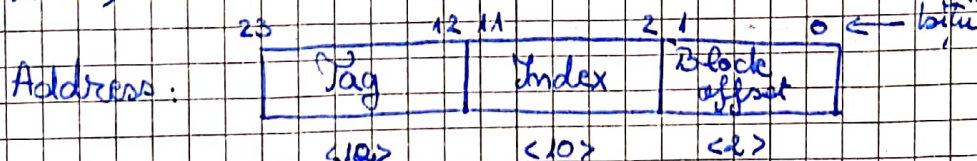 23 12 11 2 1 0 ←
Address: Tag Index Block
offset
<10> <2>